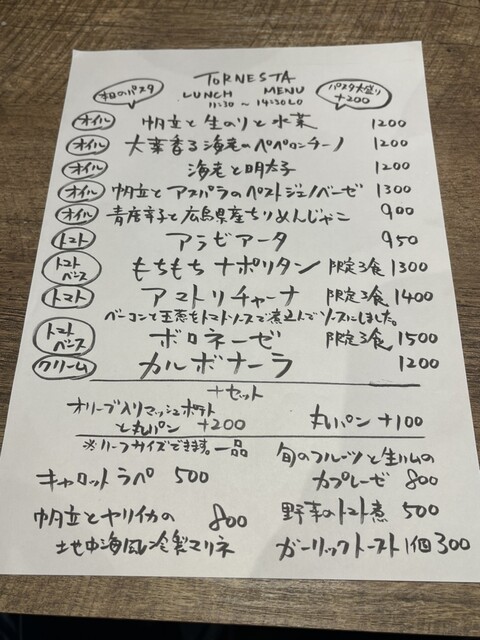 TORNESTA
本日のパスタ
LUNCH MENU
11:30 ~ 14:30LO
パスタ大盛り
+200
オイル 帆立と生のりと水菜 1200
オイル 大葉香る海老のペペロンチーノ 1200
オイル 海老と明太子 1200
オイル 帆立とアスパラのペストジェノベーゼ 1300
オイル 青唐辛子と広島県産ちりめんじゃこ 900
トマト アラビアータ 950
トマトベース もちもちナポリタン 限定3食 1300
トマト アマトリチャーナ 限定3食 1400
ベーコンと玉葱をトマトソースで煮込んでソースにしました。
トマトベース ボロネーゼ 限定3食 1500
クリーム カルボナーラ 1200
+セット
オリーブ入りマッシュポテト
と丸パン +200
丸パン +100
※ハーフサイズできます。一品
キャロットラペ 500
旬のフルーツと生ハムの
カプレーゼ 800
帆立とヤリイカの 800
地中海風冷製マリネ
野菜のトマト煮 500
ガーリックトースト1個300